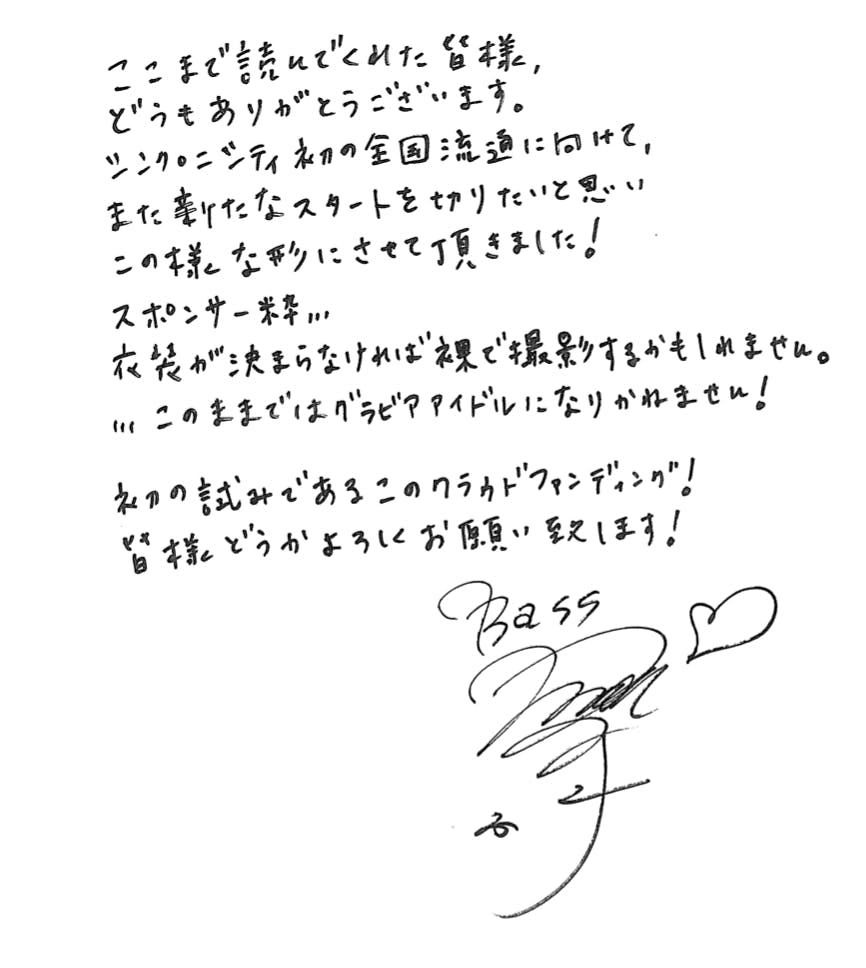 ここまで読んでくれた皆様,
どうもありがとうございます。
シンクロニシティ初の全国流通に向けて,
また新たなスタートを切りたいと思い
この様な形にさせて頂きました!
スポンサー枠...
衣装が決まらなければ裸で撮影するかもしれません。
...このままではグラビアアイドルになりかねません!
初の試みであるこのクラウドファンディング!
皆様どうかよろしくお願い致します!
Bass